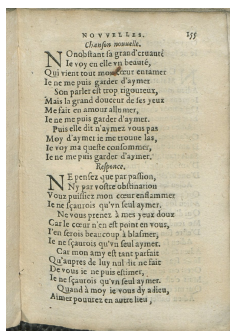 NOVVELLES. 155
Chanson nouuelle.
NOnobstant sa grand' cruauté
Ie voy en elle vn beauté,
Qui vient tout mon cœur entamer
Ie ne me puis garder d'aymer
Son parler est trop rigoureux,
Mais la grand douceur de ses yeux
Me fait en amour allumer,
Ie ne me puis garder d'aymer.
Puis elle dit n'aymez vous pas
Moy d'aymer ie me trouue las,
Ie voy ma queste consommer,
Ie ne me puis garder d'aymer.
Responce.
NE pensez que par passion,
Ny par vostre obstination
Vous puissiez mon cœur enflammer
Ie ne sçaurois qu'vn seul aymer.
Ne vous prenez à mes yeux doux
Car le cœur n'en est point en vous,
I'en serois beaucoup à blasmer,
Ie ne sçaurois qu'vn seul aymer.
Car mon amy est tant parfait
Qu'aupres de luy nul dit ne fait
De vous ie ne puis estimer,
Ie ne sçaurois qu'vn seul aymer.
Quand à moy ie vous dy adieu,
Aimer pouuez en autre lieu,